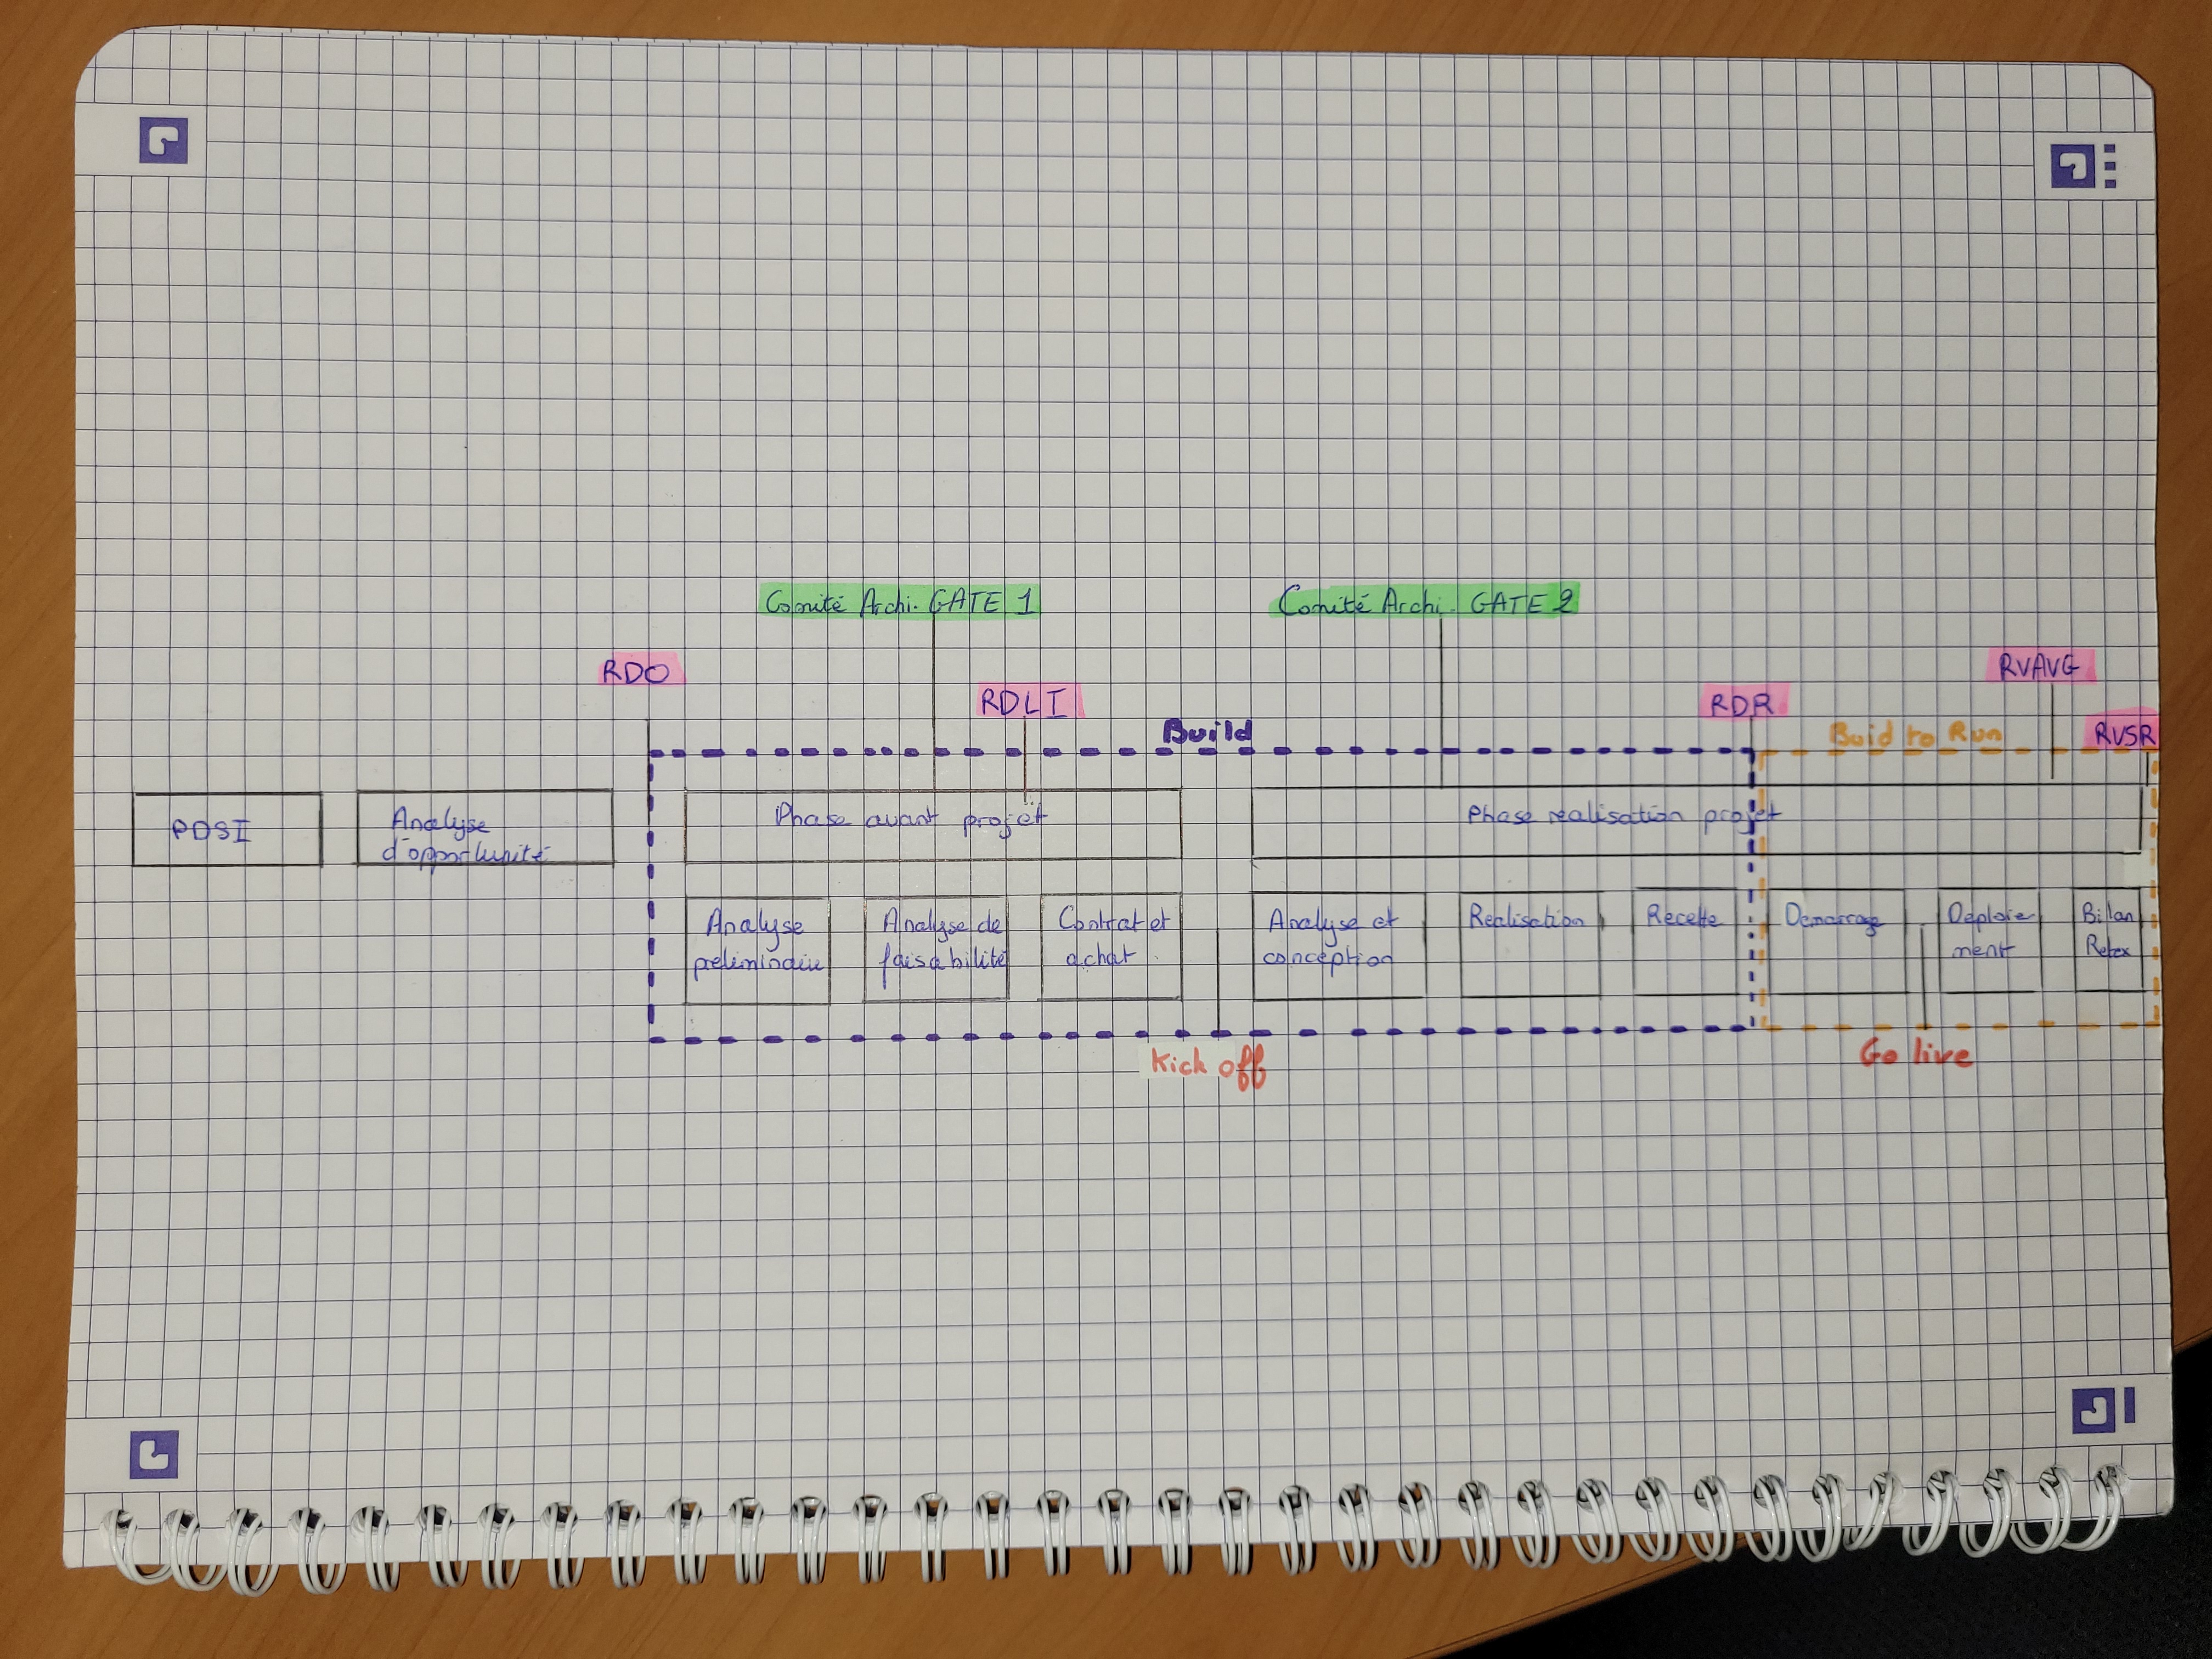 Comité Archi. GATE 1
Comité Archi. GATE 2
RDO
RVAVG
RDLI
RDR
Build
Buid to Run
RVSR
PDSI
Analyse
d'opportunité
Phase avant projet
Phase realisation projet
Analyse
préliminaire
Analyse de
faisabilité
Contrat et
achat
Analyse et
conception
Realisation
Recette
Demarrage
Deploie
ment
Bilan
Retex
Kick off
Go live